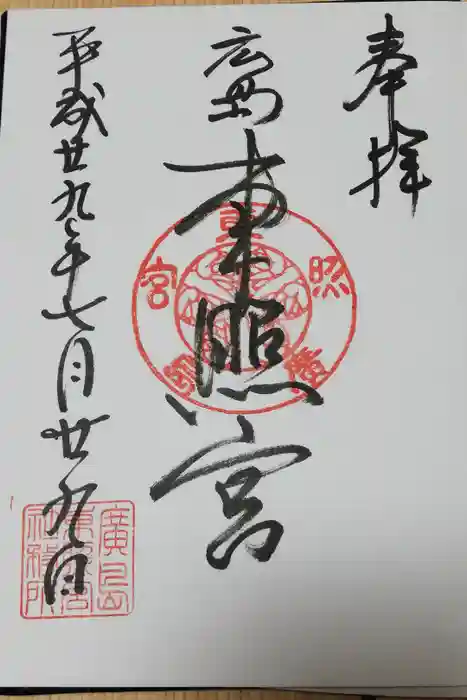 奉拝
広島東照宮
平成廿九年七月廿九日
東照宮廣島
廣島東照宮社務所